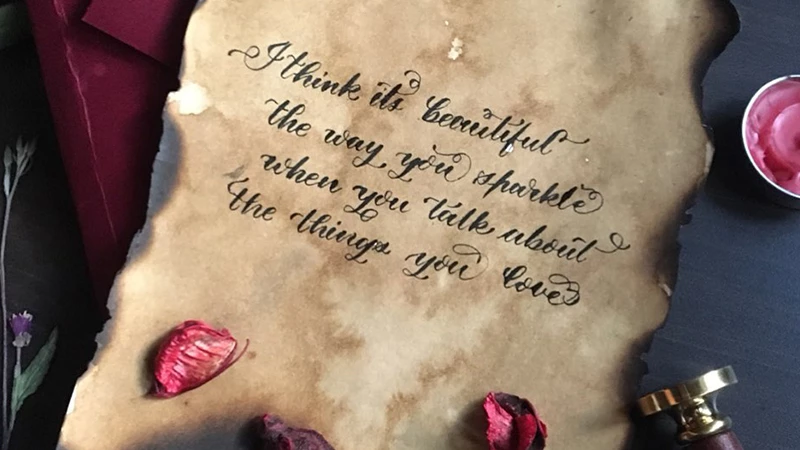 I think its beautiful
the way you sparkle
when you talk about
the things you love